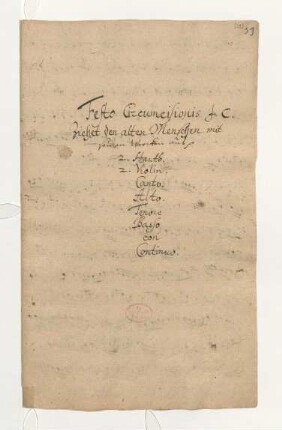 39
Festo Circumcisionis J. C.
Ziehet den alten Menschen mit
seinen Werken aus
2. Hautb.
2. Violin.
Canto.
Alto.
Tenore
Basso
con
Continuo.